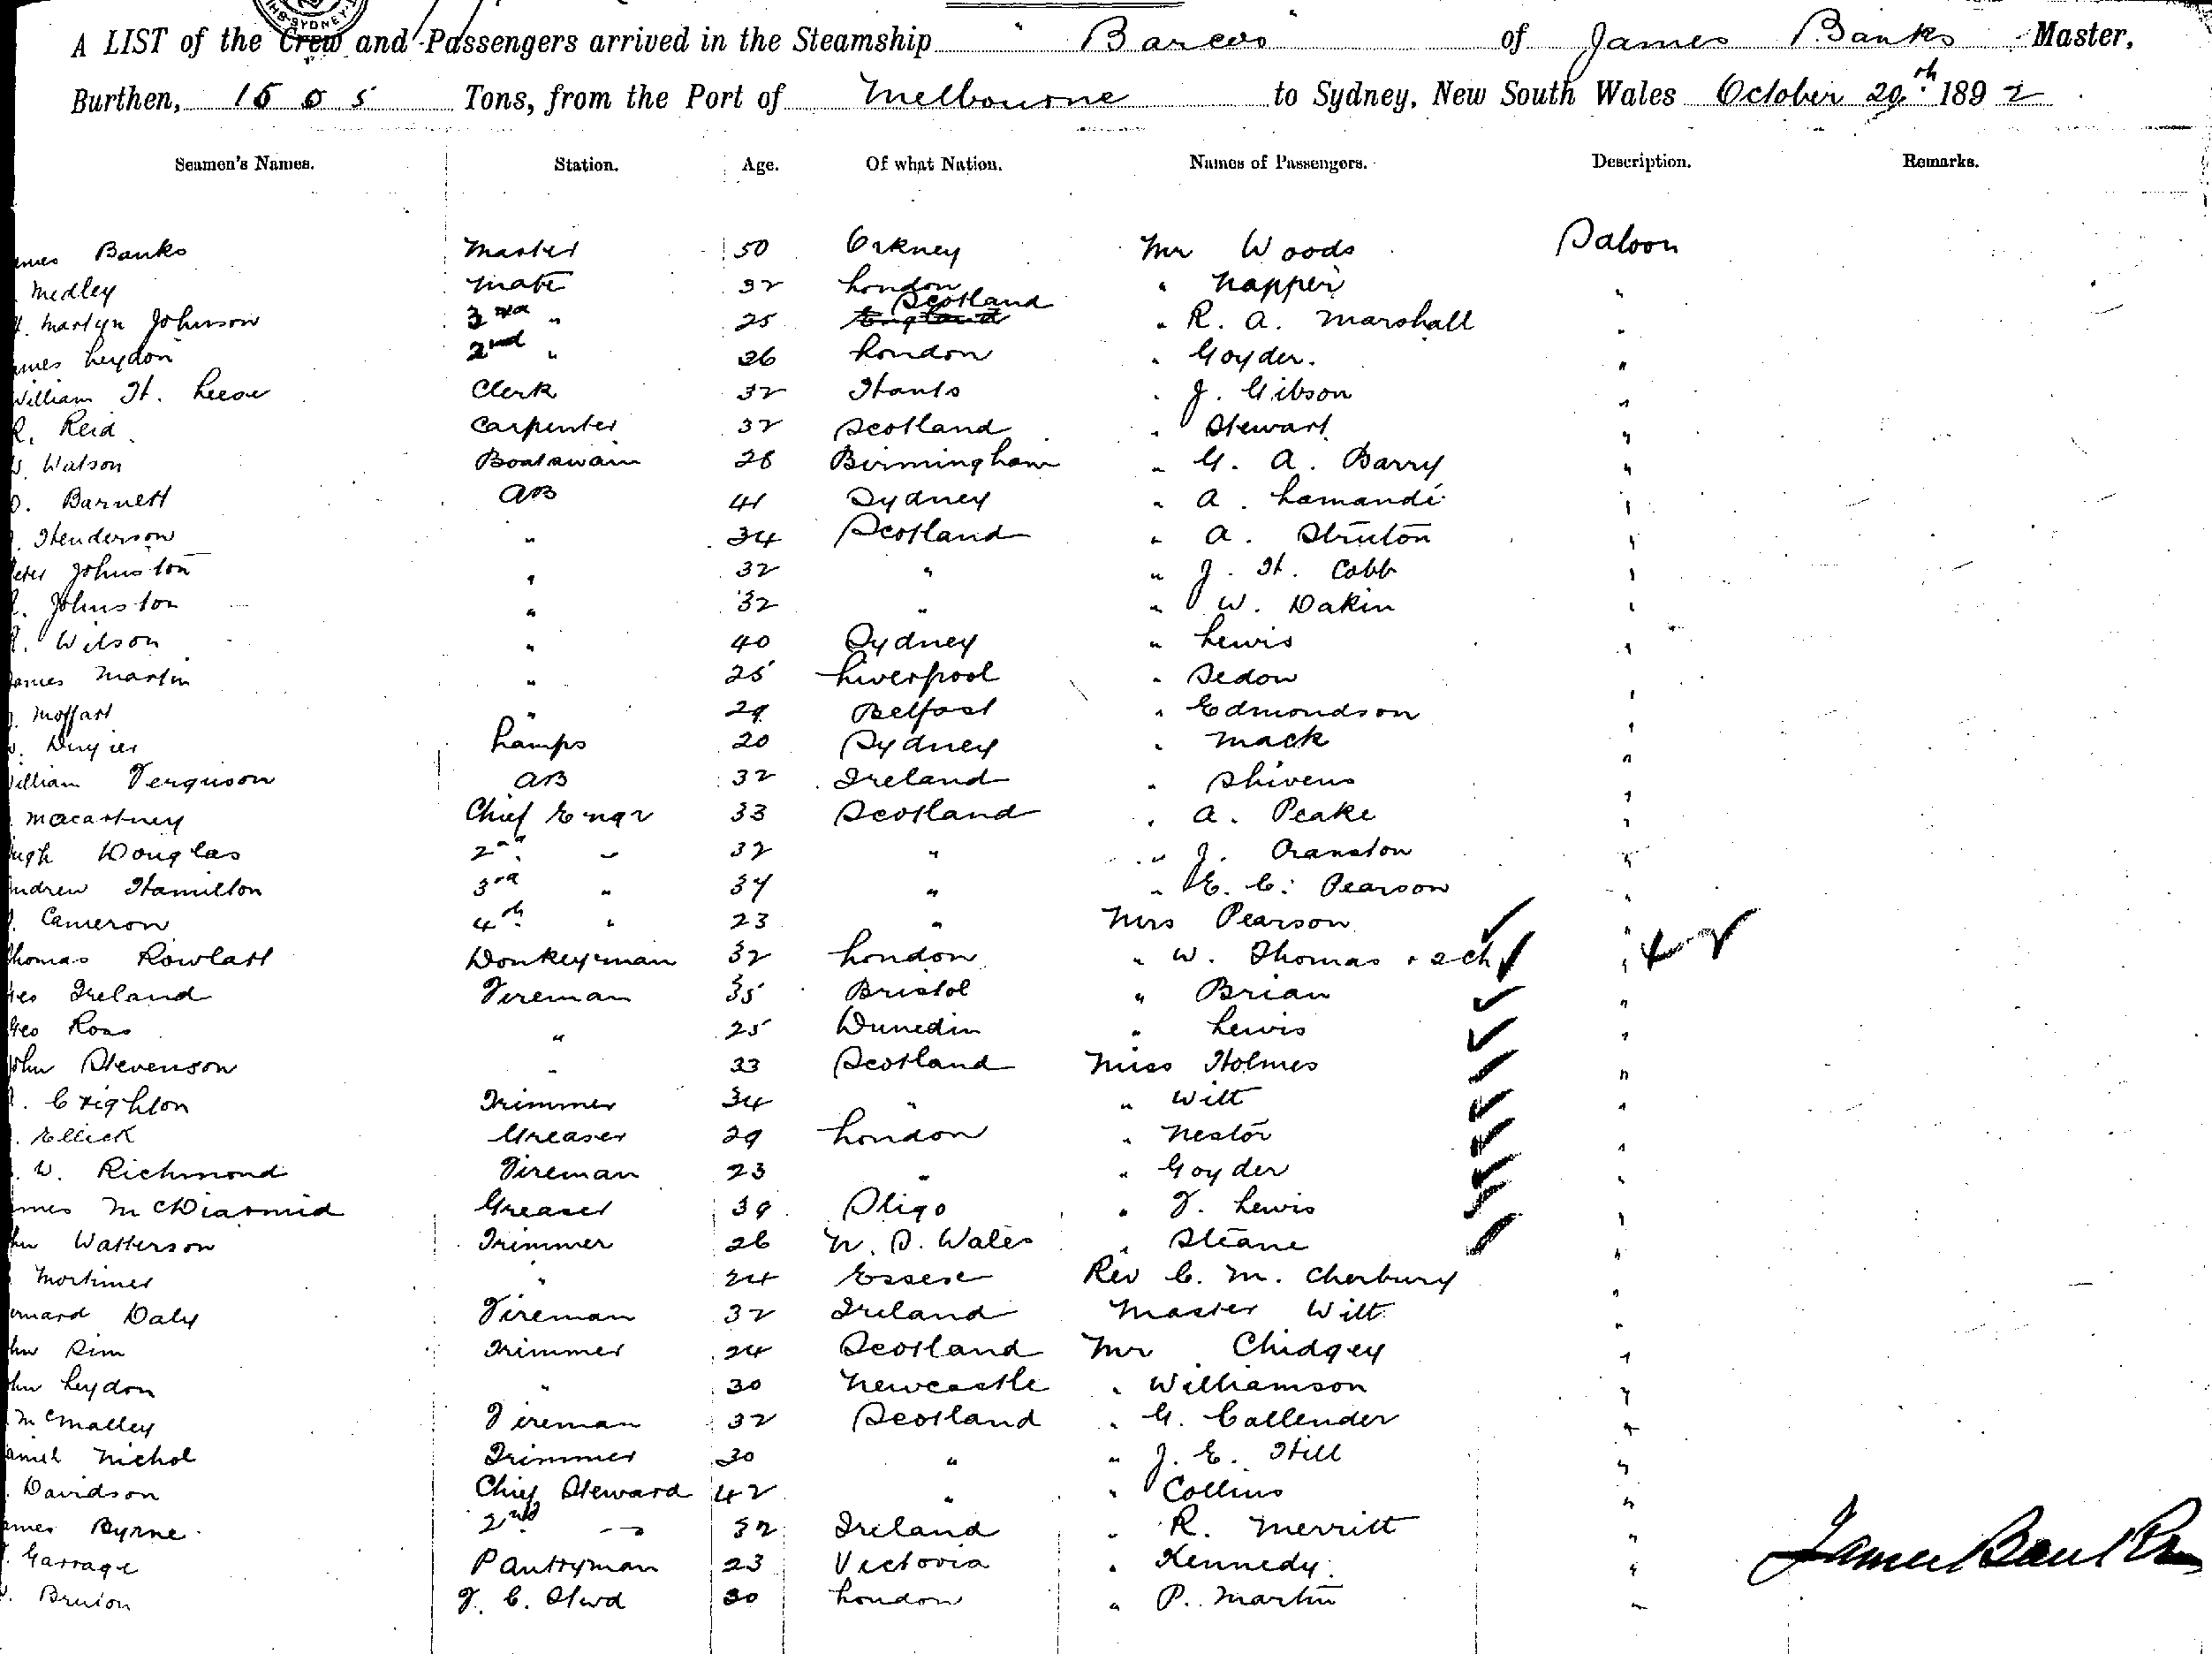 A LIST of the Crew and Passengers arrived in the Steamship "Barcoo" of James Banks Master,
Burthen, 1505 Tons, from the Port of Melbourne to Sydney, New South Wales October 20th 1892
Seamen's Names. Station. Age. Of what Nation. Names of Passengers. Description. Remarks.
ames Banks Master 50 Orkney Mr Woods Saloon
Medley Mate 32 London " Napper "
Scotland
H. Martyn Johnson 3rd " 25 England " R. A. Marshall "
ames Leydon 2nd " 26 London " Goyder. "
William H. Leese Clerk 32 Hants " J. Gibson "
R. Reid Carpenter 32 Scotland " Stewart "
W. Watson Boatswain 28 Birmingham " G. A. Barry "
Barnett AB 41 Sydney " A. Lamandé "
Henderson " 34 Scotland " A. Struton "
eter Johnston " 32 " " J. H. Cobb "
Johnston " 32 " " W. Dakin "
Wilson " 40 Sydney " Lewis "
James Martin " 25 Liverpool " Sedon "
Moffart " 29 Belfast " Edmondson "
Lamps 20 Sydney " Mack "
William Ferguson AB 32 Ireland " Shivens "
Macartney Chief Engr 33 Scotland " A. Peake "
ugh Douglas 2nd " 32 " " J. Cranston "
ndrew Hamilton 3rd " 34 " " E. C. Pearson "
Cameron 4th " 23 " Mrs Pearson "
Thomas Rowlatt Donkeyman 32 London " W. Thomas + 2 ch "
Geo Ireland Fireman 35 Bristol " Brian "
Geo Ross " 25 Dunedin " Lewis "
John Stevenson " 33 Scotland Miss Holmes "
Crighton Trimmer 34 " " Witt "
Ellick Greaser 29 London " Nestor "
W. Richmond Fireman 23 " " Goyder "
ames McDiarmid Greaser 39 Sligo " F. Lewis "
hn Watterson Trimmer 26 N. S. Wales " Steane "
Mortimer " 24 Essex Rev C. M. Cherbury "
ernard Daly Fireman 32 Ireland Master Witt "
hn Sim Trimmer 24 Scotland Mr Chidgey "
ohn Leydon " 30 Newcastle " Williamson "
McMalley Fireman 32 Scotland " G. Callender "
aniel Nichol Trimmer 30 " " J. E. Hill "
Davidson Chief Steward 42 " " Collins "
ames Byrne 2nd " 32 Ireland " R. Merritt "
Garrage Pantryman 23 Victoria " Kennedy "
Bruton F. C. Stwd 30 London " P. Martin "
James Banks